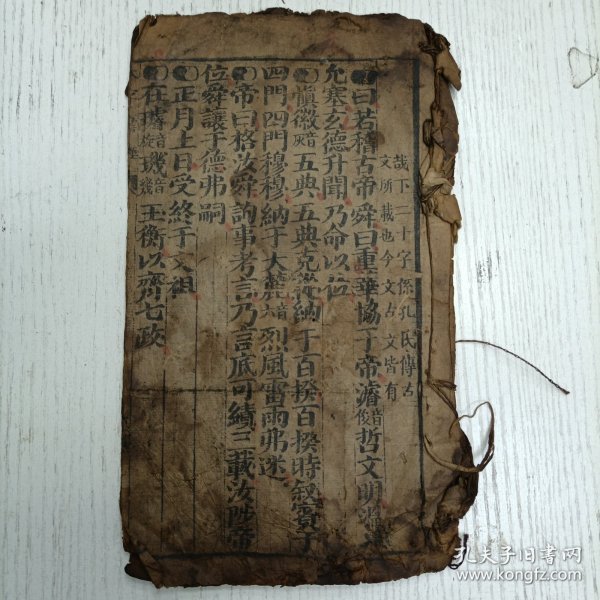 哉下二十字係孔氏傳古
文所載也今文古文皆有
曰若稽古帝舜曰重華協于帝濬音俊哲文明溫
允塞玄德升聞乃命以位
慎徽音灰五典五典克從納于百揆百揆時敘賓于
四門四門穆穆納于大麓音烈風雷雨弗迷
帝曰格汝舜詢事考言乃言底可績三載汝陟帝
位舜讓于德弗嗣
正月上日受終于文祖
在璿音旋璣音幾玉衡以齊七政
孔夫子旧书网
www.kongfz.com